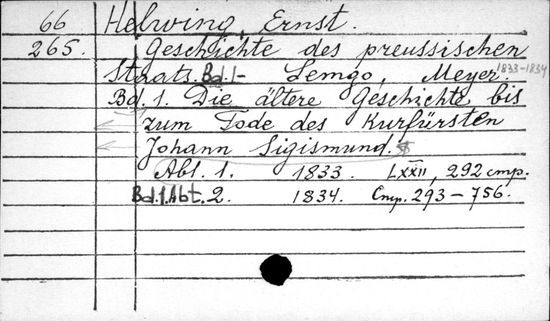 66 Helwing, Ernst.
265. Geschichte des preussischen
Staats. Bd. 1- Lemgo, Meyer. 1833-1834
Bd. 1. Die ältere Geschichte bis
zum Tode des Kurfürsten
Johann Sigismund.
Abt. 1. 1833. LXXII, 292 стр.
Bd. 1. Abt. 2. 1834. Стр. 293-756.